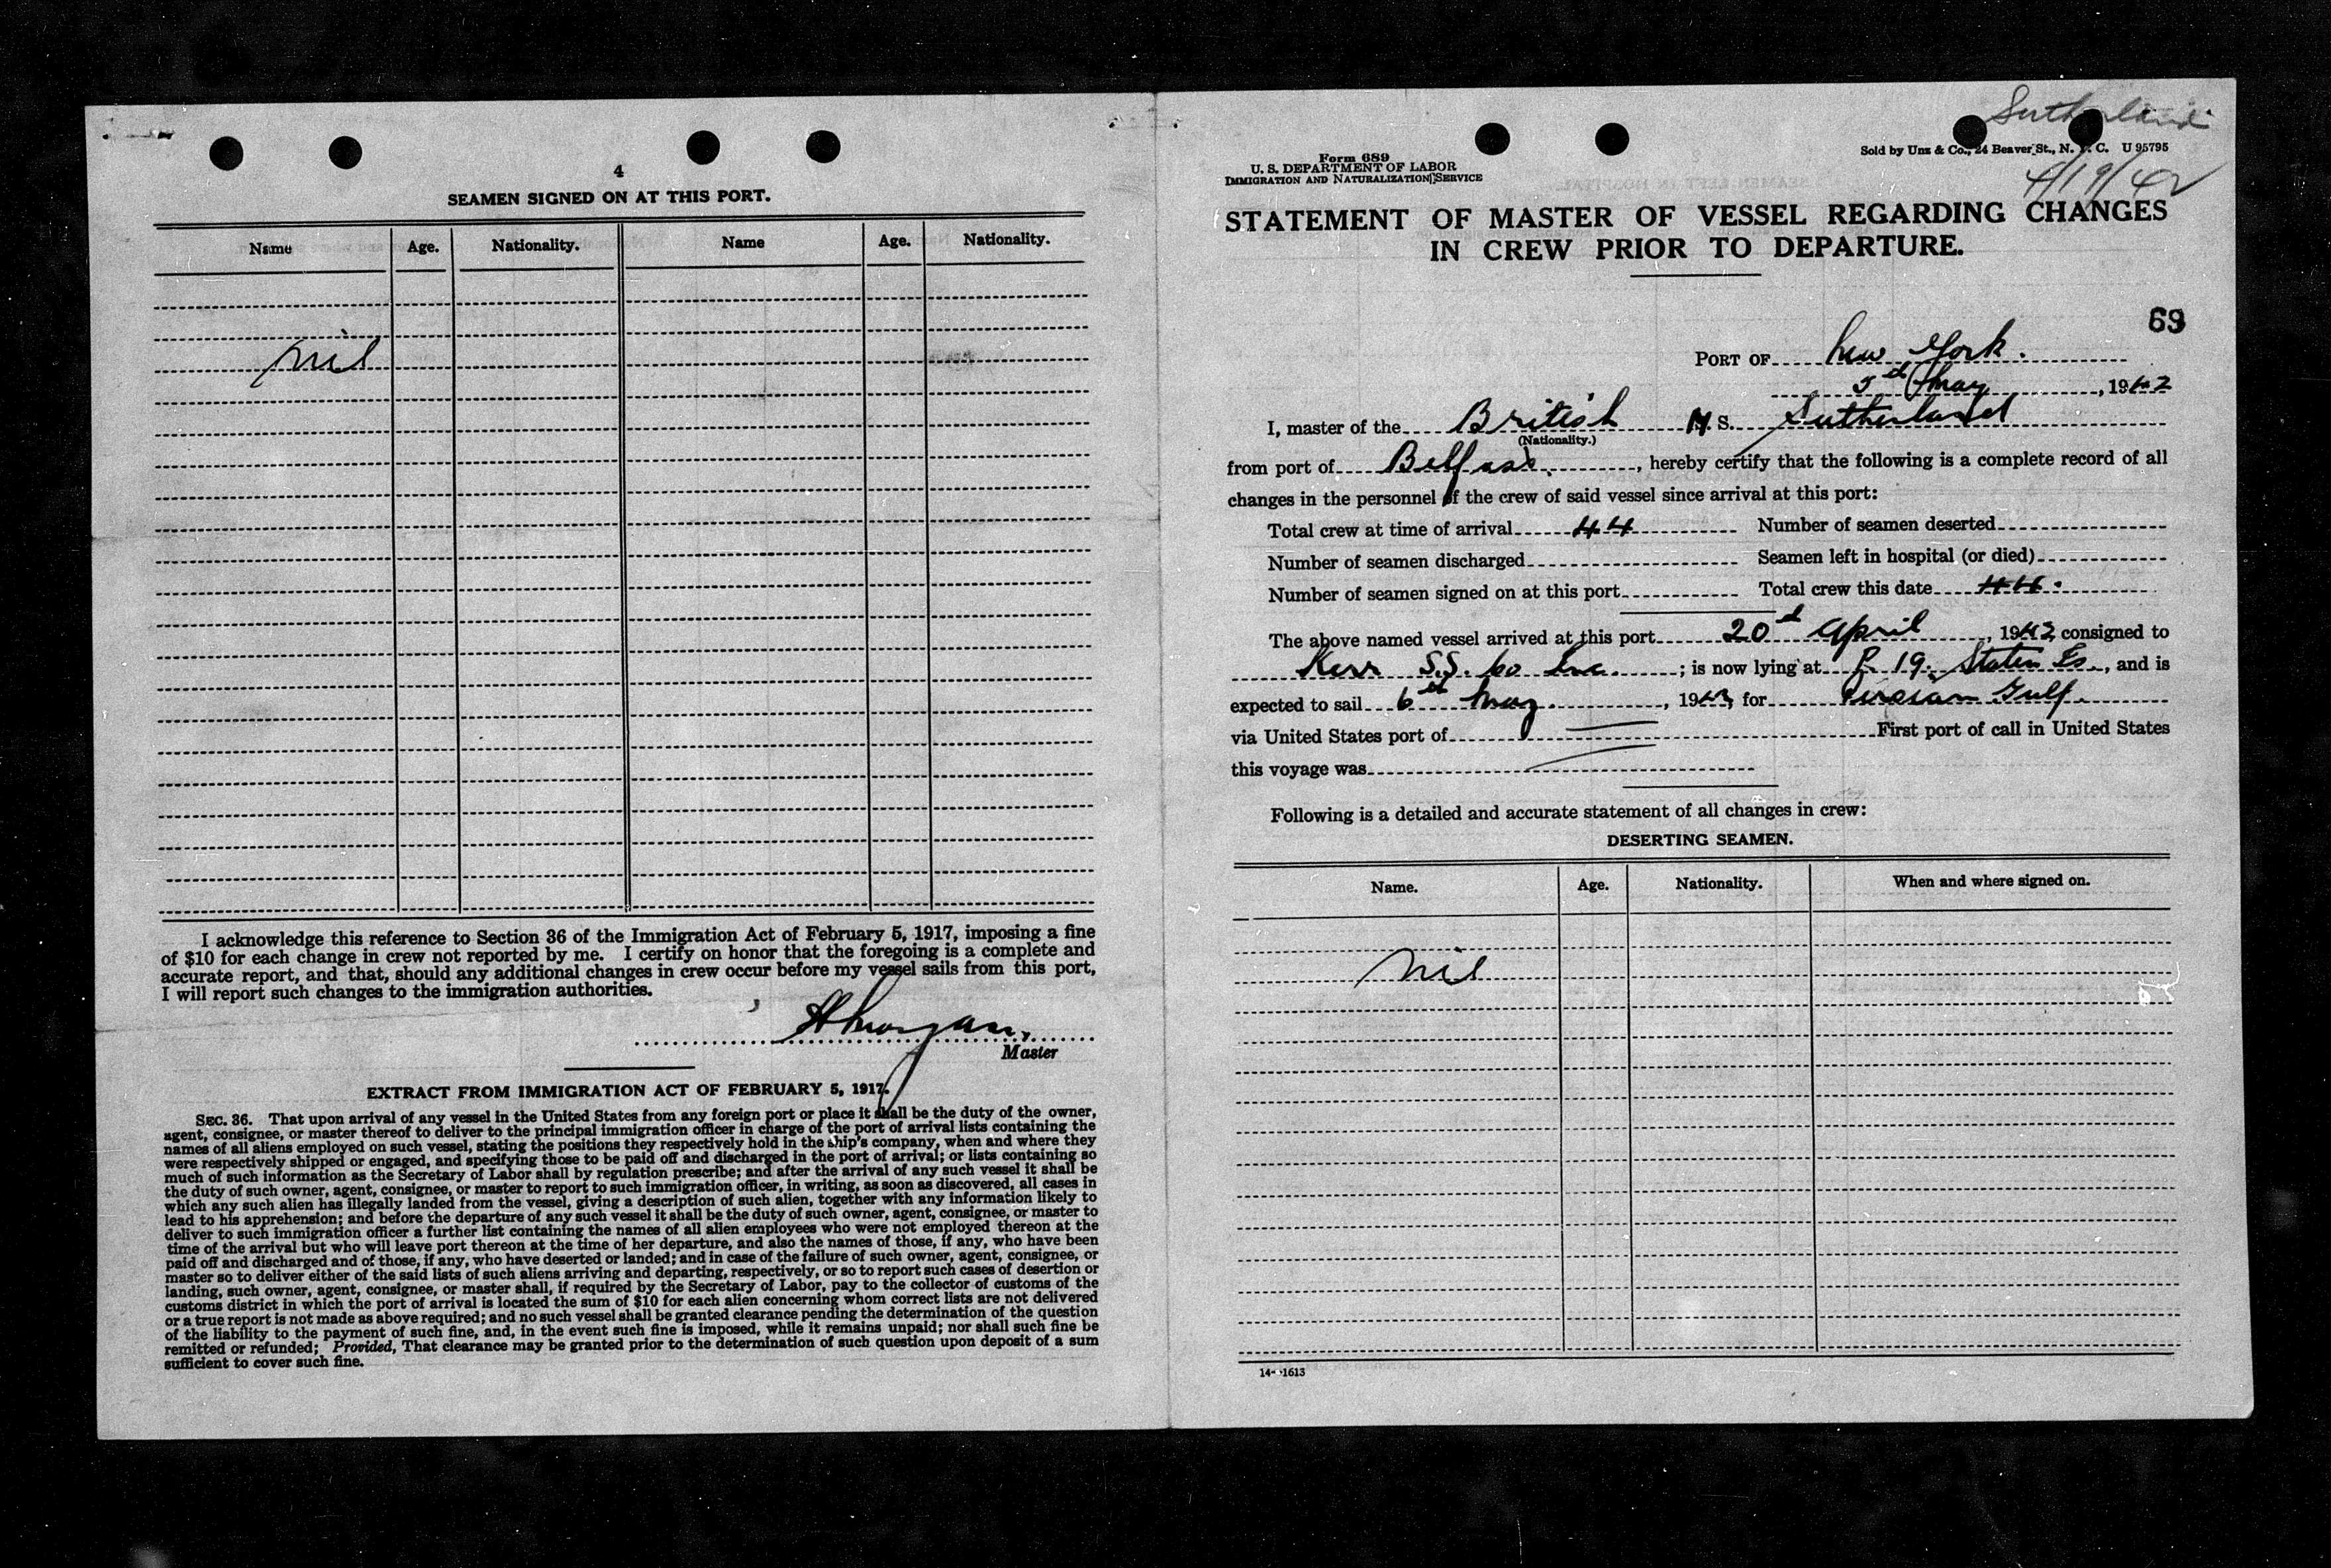 4
SEAMEN SIGNED ON AT THIS PORT.
Name Age. Nationality. Name Age. Nationality.
nil
I acknowledge this reference to Section 36 of the Immigration Act of February 5, 1917, imposing a fine
of $10 for each change in crew not reported by me. I certify on honor that the foregoing is a complete and
accurate report, and that, should any additional changes in crew occur before my vessel sails from this port,
I will report such changes to the immigration authorities.
HMorgan.
Master
EXTRACT FROM IMMIGRATION ACT OF FEBRUARY 5, 1917.
SEC. 36. That upon arrival of any vessel in the United States from any foreign port or place it shall be the duty of the owner,
agent, consignee, or master thereof to deliver to the principal immigration officer in charge of the port of arrival lists containing the
names of all aliens employed on such vessel, stating the positions they respectively hold in the ship's company, when and where they
were respectively shipped or engaged, and specifying those to be paid off and discharged in the port of arrival; or lists containing so
much of such information as the Secretary of Labor shall by regulation prescribe; and after the arrival of any such vessel it shall be
the duty of such owner, agent, consignee, or master to report to such immigration officer, in writing, as soon as discovered, all cases in
which any such alien has illegally landed from the vessel, giving a description of such alien, together with any information likely to
lead to his apprehension; and before the departure of any such vessel it shall be the duty of such owner, agent, consignee, or master to
deliver to such immigration officer a further list containing the names of all alien employees who were not employed thereon at the
time of the arrival but who will leave port thereon at the time of her departure, and also the names of those, if any, who have been
paid off and discharged and of those, if any, who have deserted or landed; and in case of the failure of such owner, agent, consignee, or
master so to deliver either of the said lists of such aliens arriving and departing, respectively, or so to report such cases of desertion or
landing, such owner, agent, consignee, or master shall, if required by the Secretary of Labor, pay to the collector of customs of the
customs district in which the port of arrival is located the sum of $10 for each alien concerning whom correct lists are not delivered
or a true report is not made as above required; and no such vessel shall be granted clearance pending the determination of the question
of the liability to the payment of such fine, and, in the event such fine is imposed, while it remains unpaid; nor shall such fine be
remitted or refunded; Provided, That clearance may be granted prior to the determination of such question upon deposit of a sum
sufficient to cover such fine.
Sutherland
Form 689
U. S. DEPARTMENT OF LABOR
IMMIGRATION AND NATURALIZATION SERVICE
Sold by Unz & Co., 24 Beaver St., N. Y. C. U 95795
4/19/42
STATEMENT OF MASTER OF VESSEL REGARDING CHANGES
IN CREW PRIOR TO DEPARTURE.
69
PORT OF New York.
5th May, 1942
I, master of the British M. S. Sutherland
(Nationality.)
from port of Belfast, hereby certify that the following is a complete record of all
changes in the personnel of the crew of said vessel since arrival at this port:
Total crew at time of arrival 44 Number of seamen deserted
Number of seamen discharged Seamen left in hospital (or died)
Number of seamen signed on at this port Total crew this date 44.
The above named vessel arrived at this port 20th April, 1942 consigned to
Kerr S.S. Co Inc.; is now lying at P. 19. Staten Is., and is
expected to sail 6th May., 1942, for Persian Gulf.
via United States port of First port of call in United States
this voyage was
Following is a detailed and accurate statement of all changes in crew:
DESERTING SEAMEN.
Name. Age. Nationality. When and where signed on.
nil
14-1613